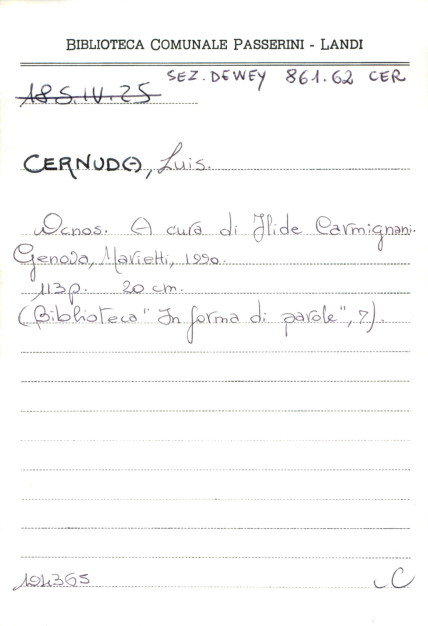 BIBLIOTECA COMUNALE PASSERINI - LANDI
SEZ. DEWEY 861.62 CER
185.IV.25
CERNUDA, Luis.
Ocnos. A cura di Ilide Carmignani.
Genova, Marietti, 1990.
113p. 20 cm.
(Biblioteca "In forma di parole", 7).
194365 C